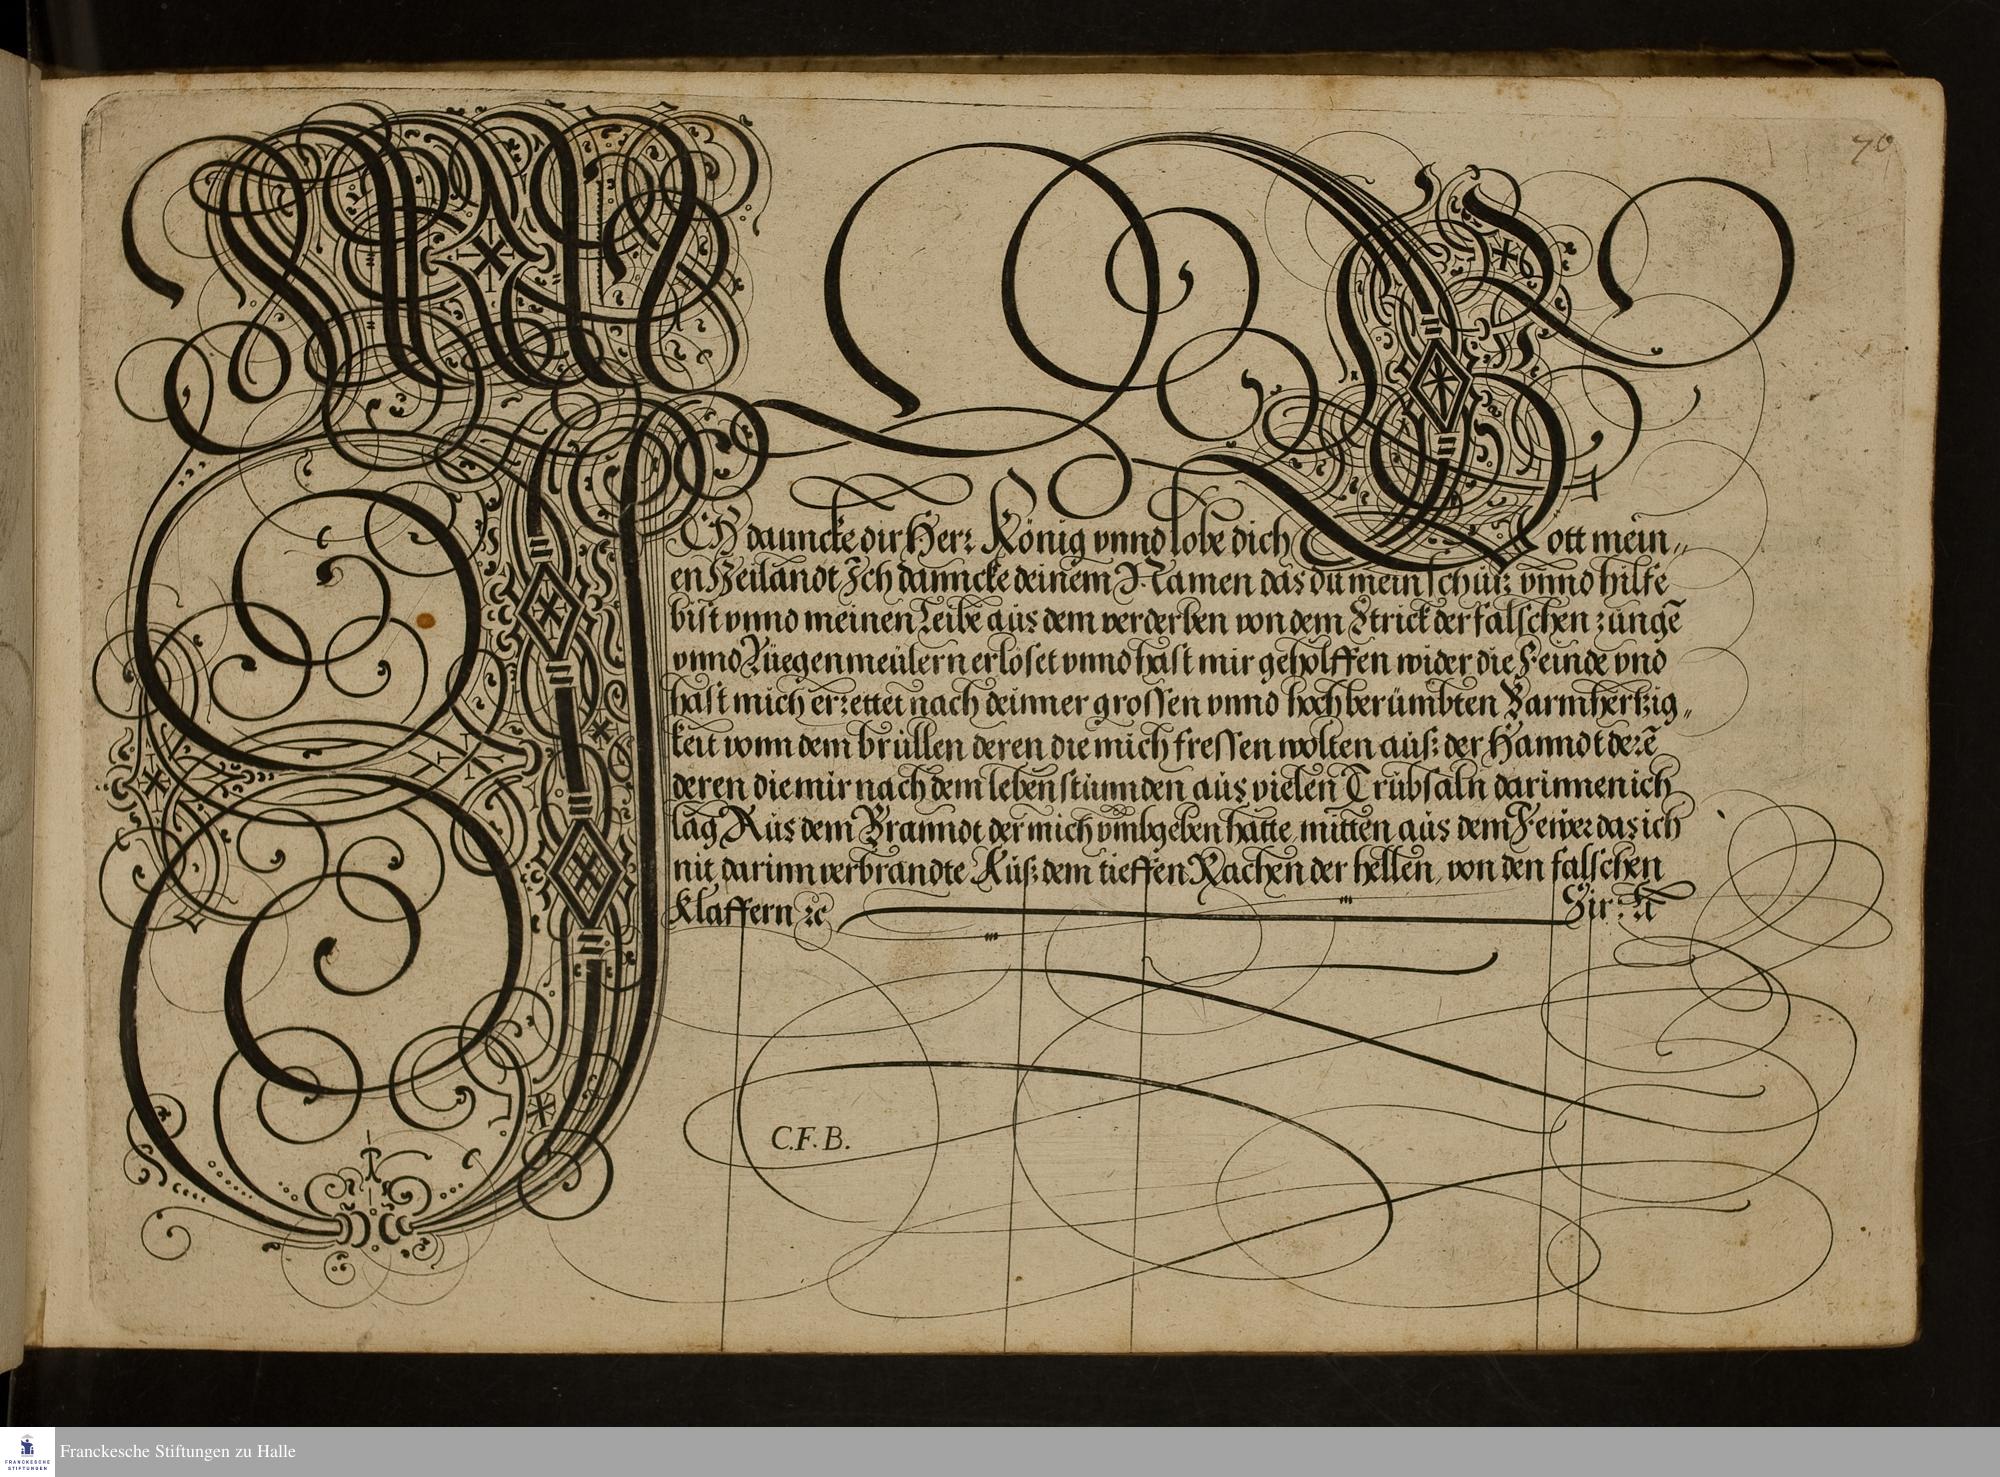 70
ICH dauncke dir Herr König vnnd lobe dich Gott mein„
en Heilandt Ich danncke deinem Namen das du mein schutz vnnd hilfe
bist vnnd meinen Leibe aus dem verderben von dem Strick der falschen zungē
vnnd Lüegenmeülern erlöset vnnd hast mir geholffen wider die Feinde vnd
hast mich errettet nach deinner grossen vnnd hochberümbten Barmhertzig„
keit vonn dem brüllen deren die mich fressen wolten auß der Hanndt derē
deren die mir nach dem leben stunnden aus vielen Trübsaln darinnen ich
lag Aus dem Branndt der mich vmbgeben hatte, mitten aus dem Fewer das ich
nit darinn verbrandte Auß dem tieffen Rachen der hellen, von den falschen
Klaffern ꝛc Sir.
C.F.B.
FRANCKESCHE
STIFTUNGEN
Franckesche Stiftungen zu Halle